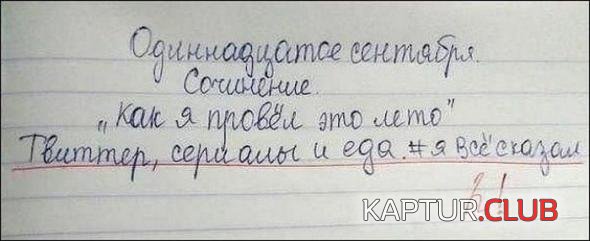 Одиннадцатое сентября.
Сочинение.
„Как я провёл это лето"
Твиттер, сериалы и еда. #я всё сказал
KAPTUR.CLUB